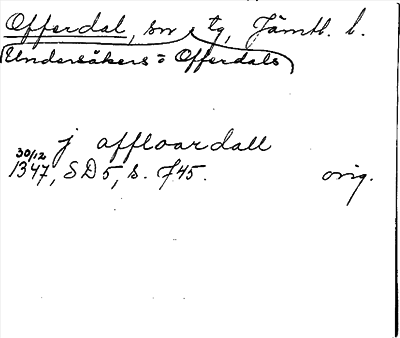 Offerdal, sn o tg, Jämtl. l.
Undersåkers o Offerdals
j affloardall
30/12
1347, SD 5, s. 745. orig.